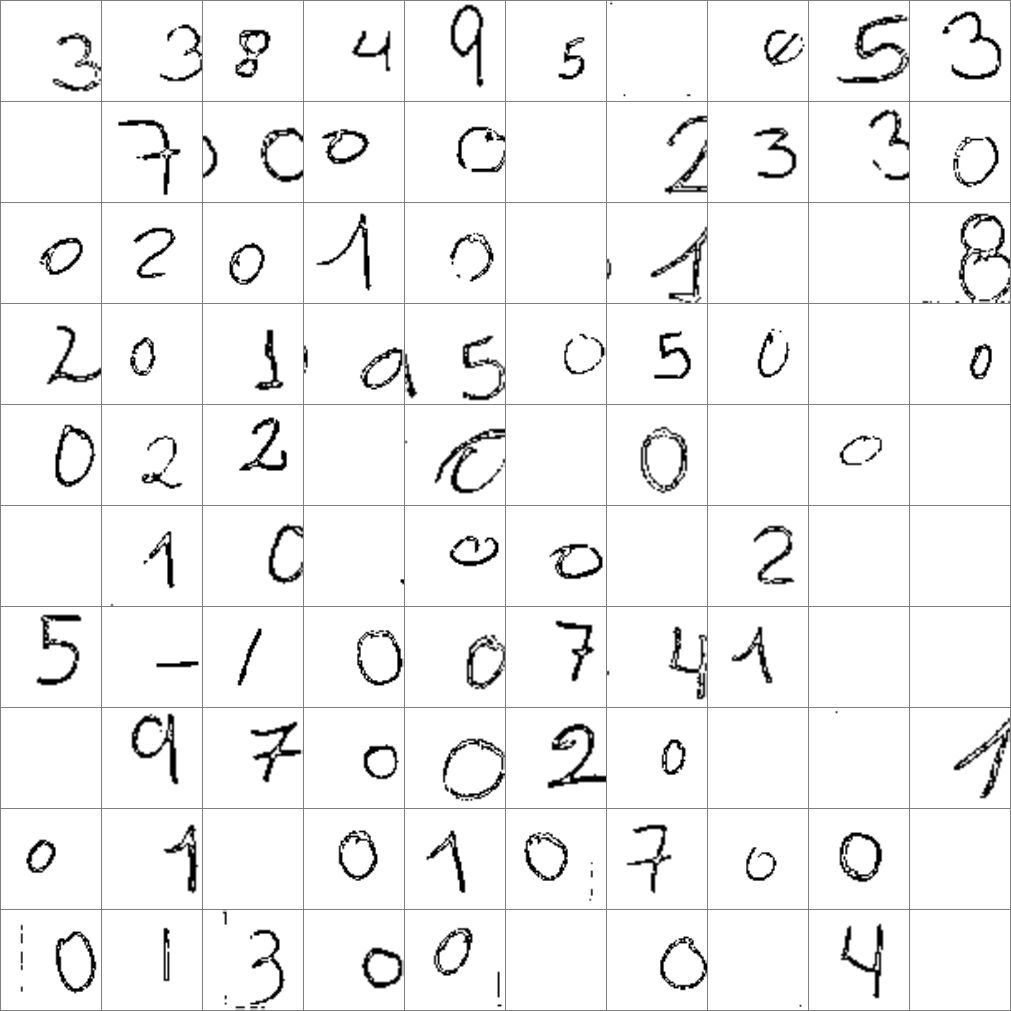 3 3 8 4 9 5 0 5 3
7 0 0 0 2 3 3 0
0 2 0 1 0 1 8
2 0 1 0 5 0 5 0 0
0 2 2 0 0 0
1 0 0 0 2
5 - / 0 0 7 4 1
9 7 0 0 2 0 1
0 1 0 1 0 7 0 0
0 1 3 0 0 0 4